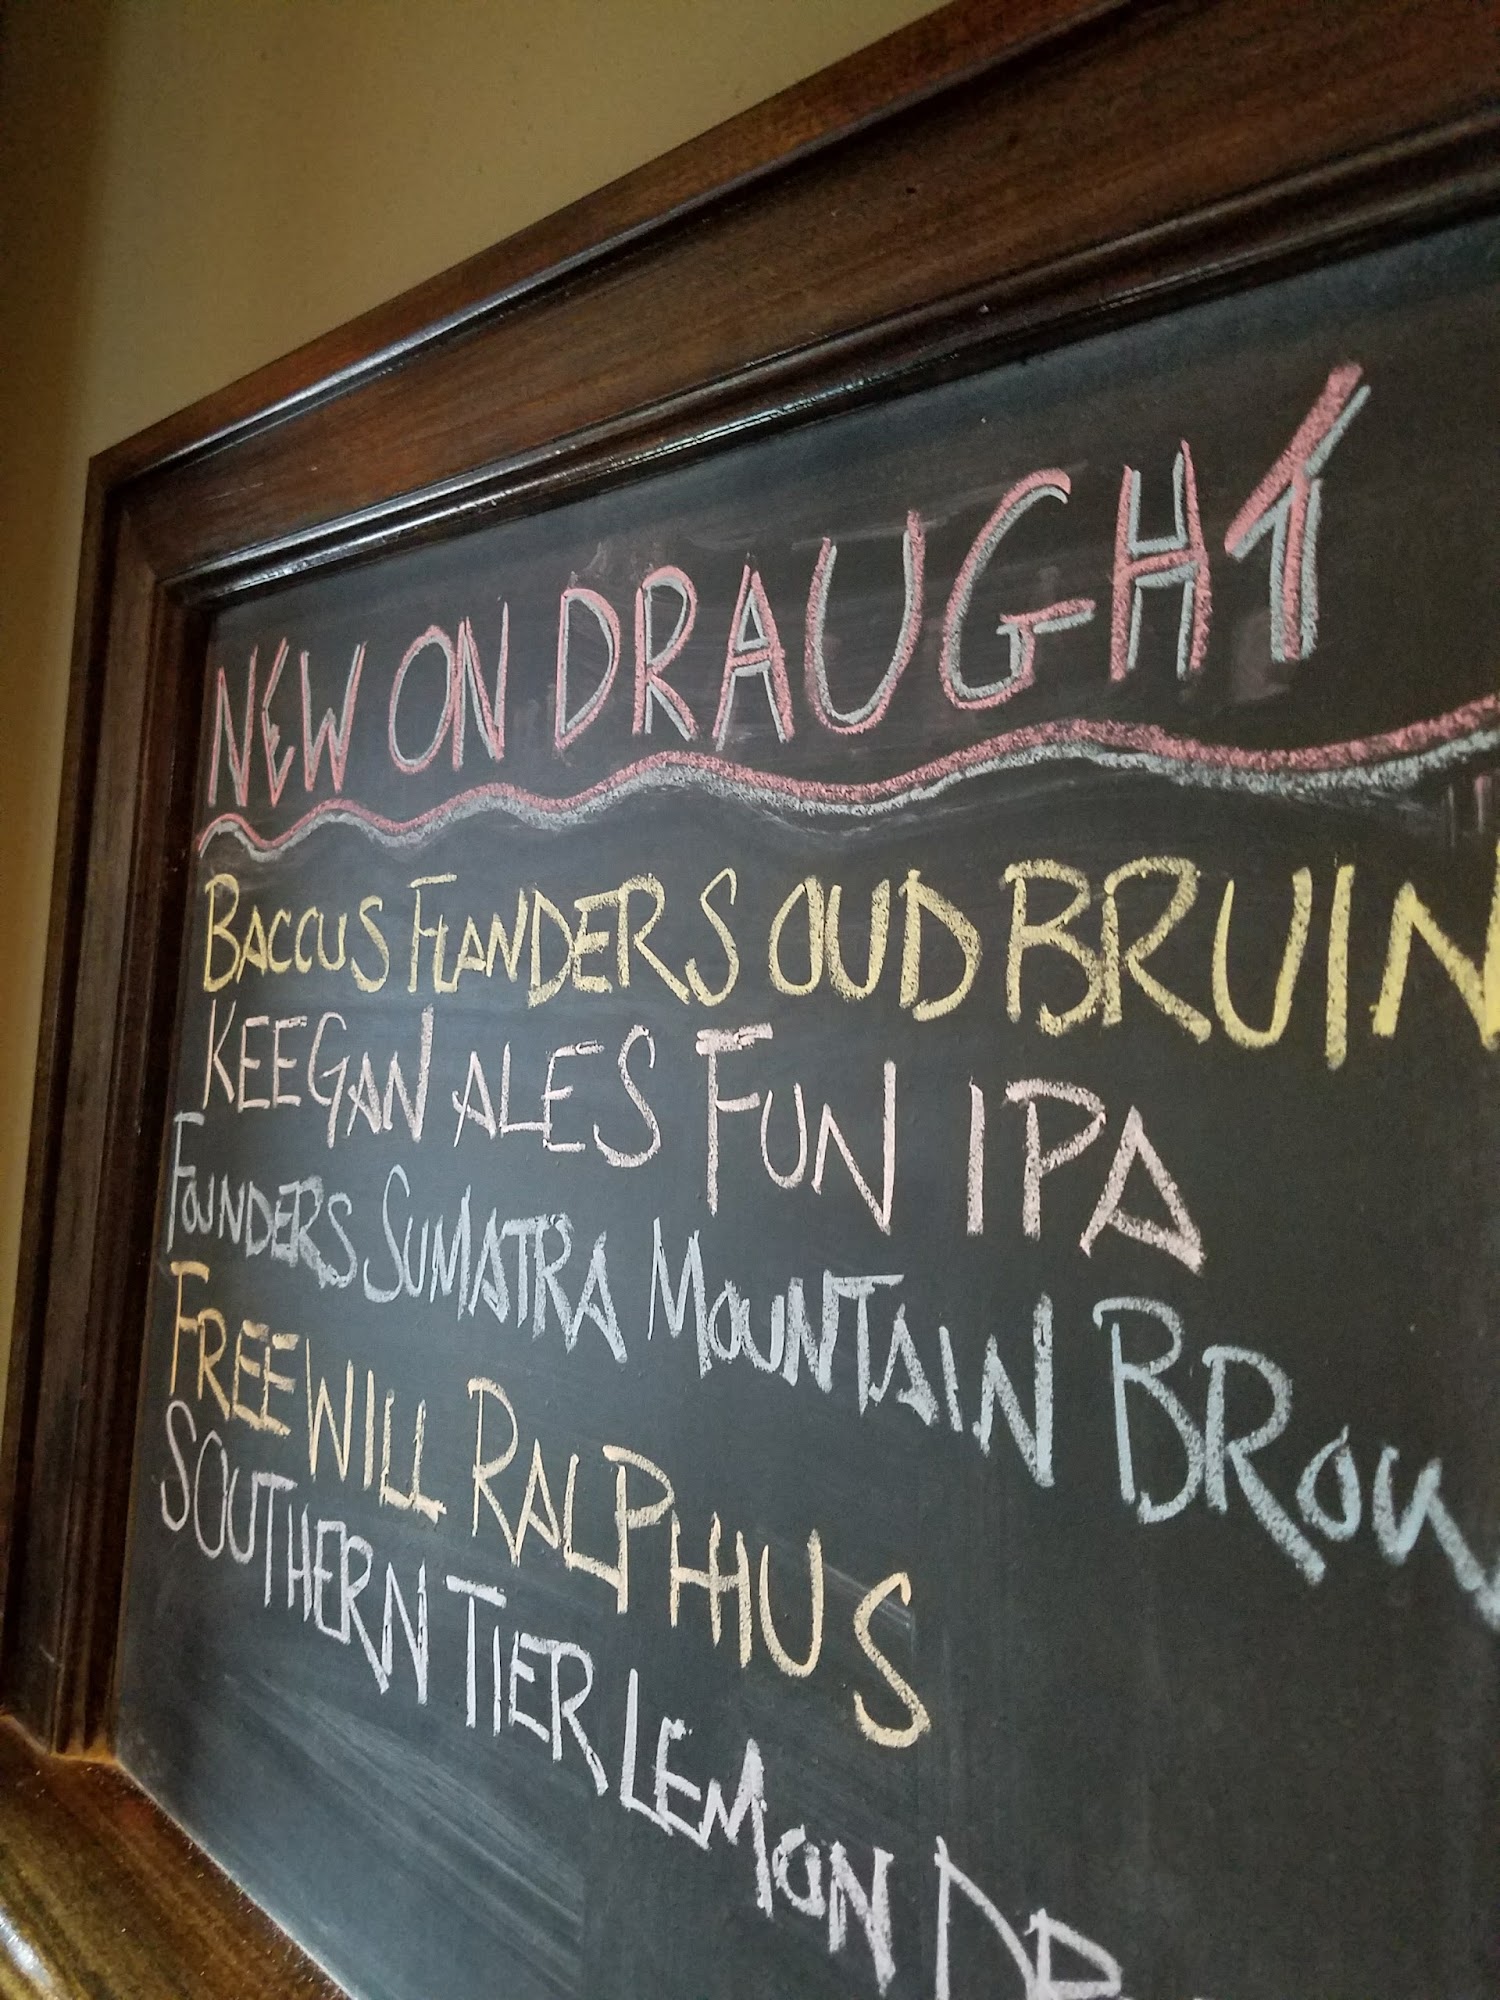 NEW ON DRAUGHT
BACCUS FLANDERS OUD BRUIN
KEEGAN ALES FUN IPA
FOUNDERS SUMATRA MOUNTAIN BROW
FREEWILL RALPHIUS
SOUTHERN TIER LEMON DR